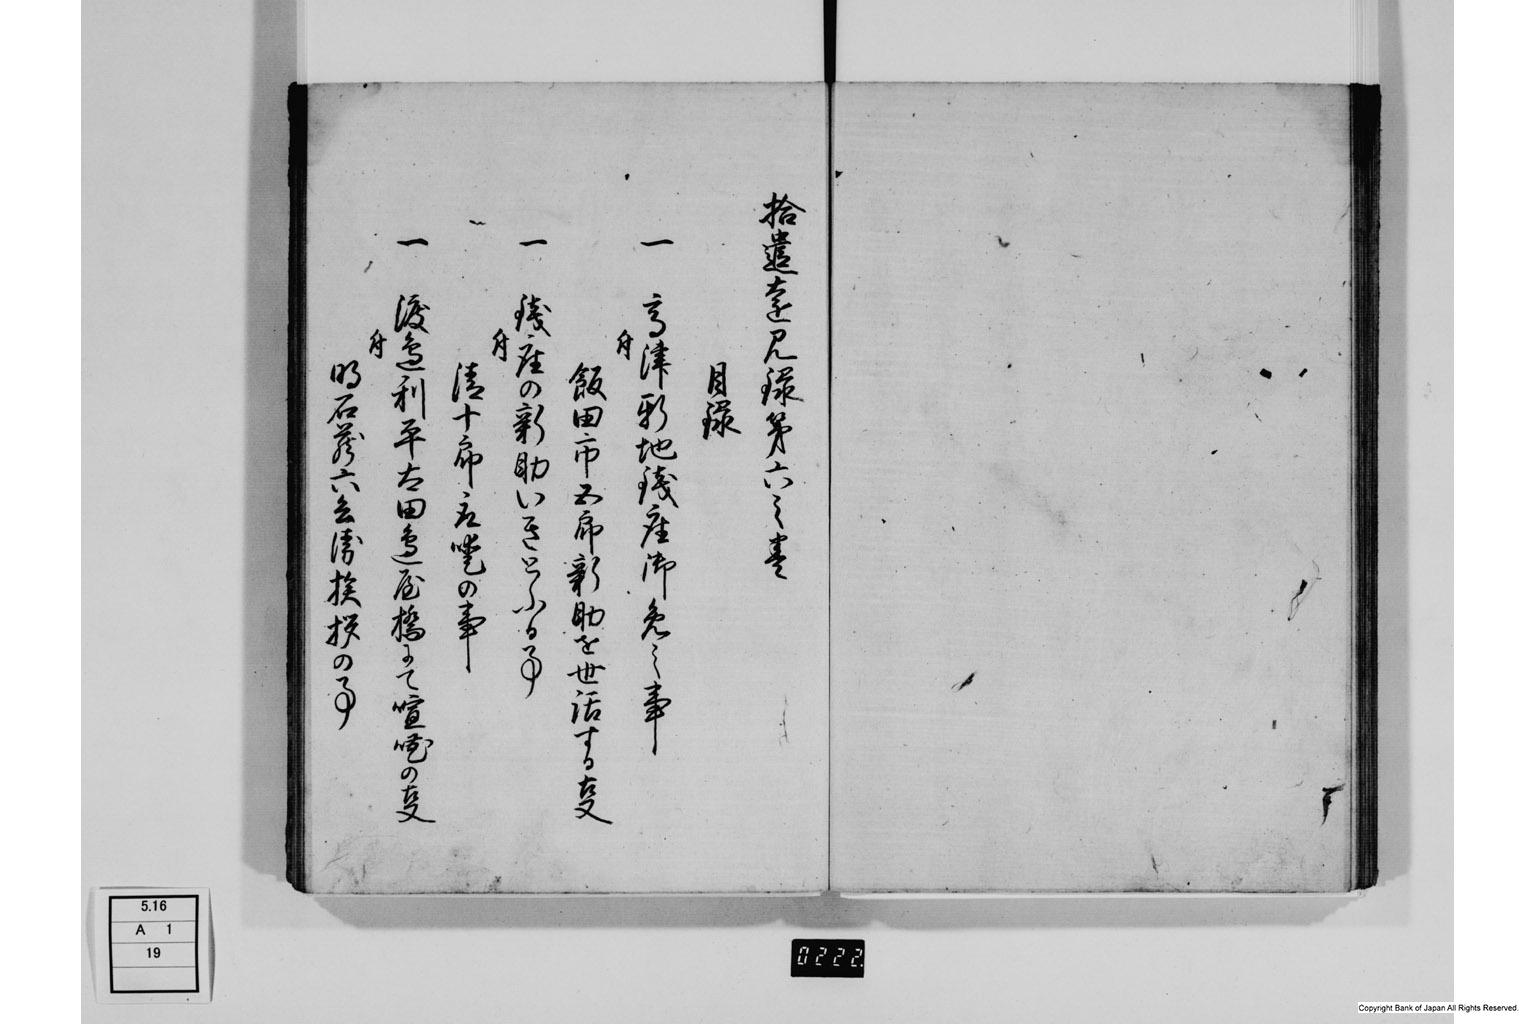 拾遺遠見録第六之巻
目録
一 高津新地銭座御免之事
并
飯田市五郎新助を世話する事
一 銭座の新助いきとふる事
并
清十郎立啌の事
一 渡邊利平太田邊屋橋にて喧嘩の事
并
明石藤六兵衛挨拶の事
5.16
A 1
19
0222.
Copyright Bank of Japan All Rights Reserved.